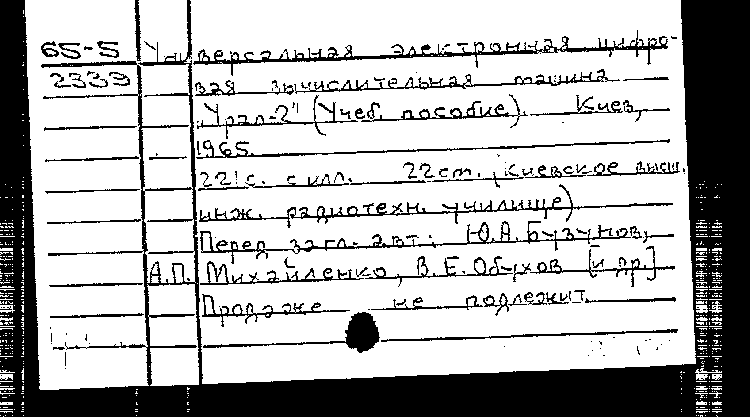 65-5 Универсальная электронная цифро-
2339 вая вычислительная машина
„Урал-2" (Учеб. пособие). Киев,
1965.
221с. с илл. 22см. (Киевское высш.
инж. радиотехн. училище)
Перед загл. авт: Ю.А.Бузунов,
А.П. Михайленко, В.Е.Обухов [и др.]
Продаже не подлежит.